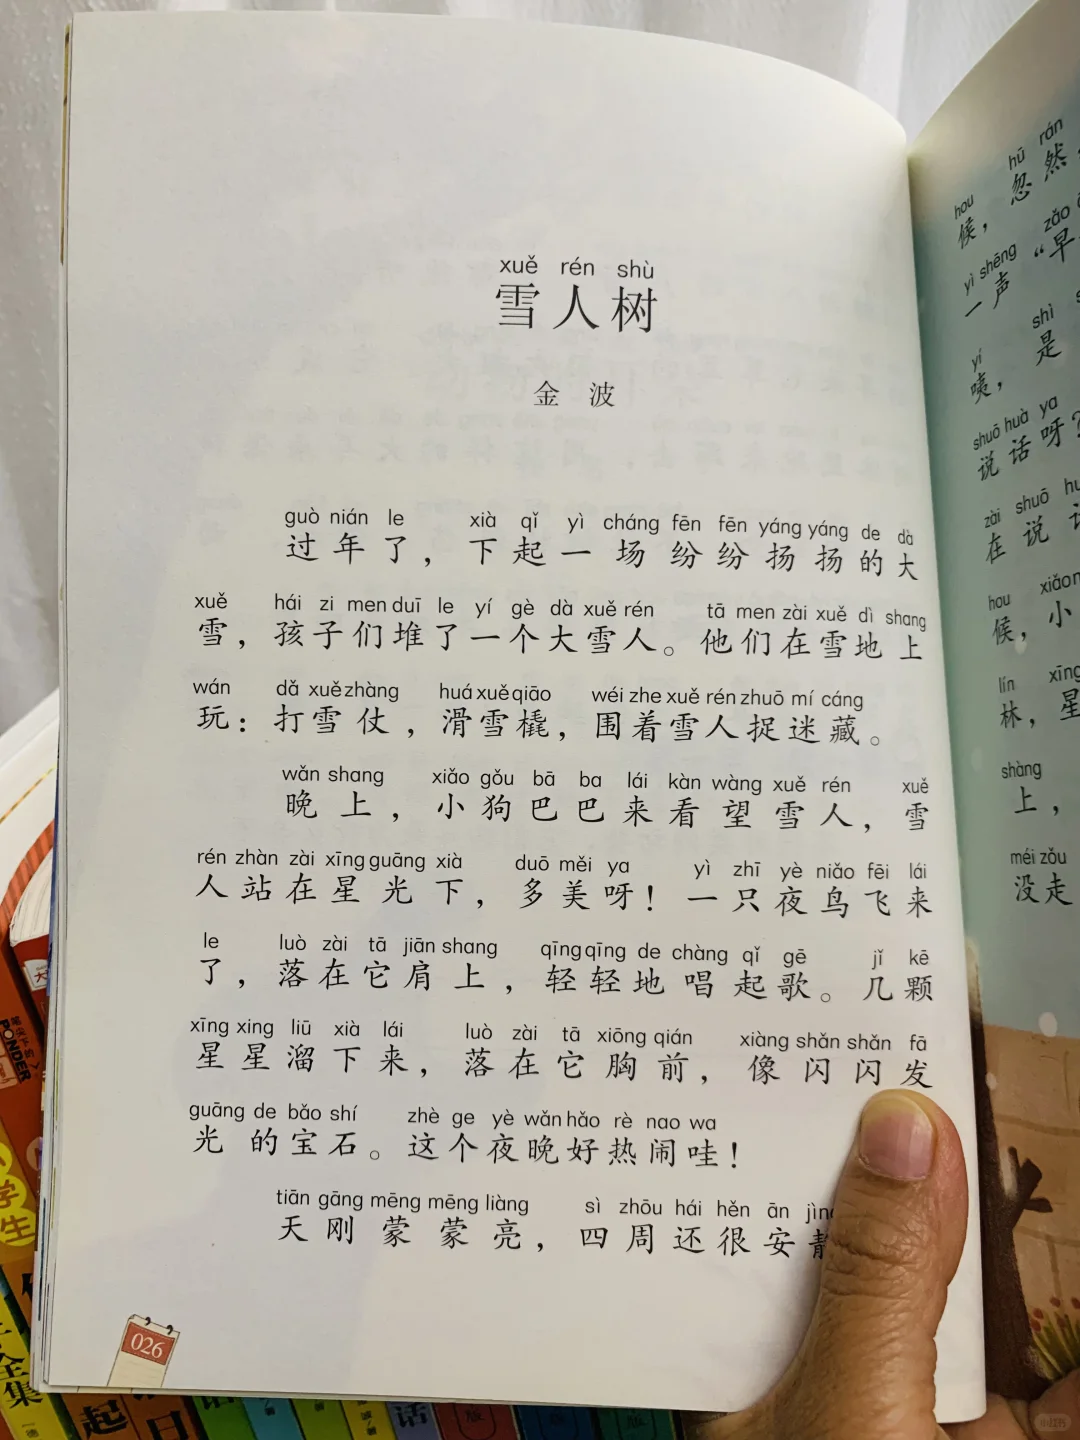 xuě rén shù
雪人树
金 波
guò nián le xià qǐ yì cháng fēn fēn yáng yáng de dà
过年了，下起一场纷纷扬扬的大
xuě hái zi men duī le yí gè dà xuě rén tā men zài xuě dì shang
雪，孩子们堆了一个大雪人。他们在雪地上
wán dǎ xuě zhàng huá xuě qiāo wéi zhe xuě rén zhuō mí cáng
玩：打雪仗，滑雪橇，围着雪人捉迷藏。
wǎn shang xiǎo gǒu bā ba lái kàn wàng xuě rén xuě
晚上，小狗巴巴来看望雪人，雪
rén zhàn zài xīng guāng xià duō měi ya yì zhī yè niǎo fēi lái
人站在星光下，多美呀！一只夜鸟飞来
le luò zài tā jiān shang qīng qīng de chàng qǐ gē jǐ kē
了，落在它肩上，轻轻地唱起歌。几颗
xīng xing liū xià lái luò zài tā xiōng qián xiàng shǎn shǎn fā
星星溜下来，落在它胸前，像闪闪发
guāng de bǎo shí zhè ge yè wǎn hǎo rè nao wa
光的宝石。这个夜晚好热闹哇！
tiān gāng mēng mēng liàng sì zhōu hái hěn ān
天刚蒙蒙亮，四周还很安静
026
hou hū rán
候，忽然
yì shēng zǎo
一声“早
yí shì
咦，是
shuō huà ya
说话呀？
zài shuō
在说
hou xiǎo
候，小
lín xīng
林，星
shàng
上，
méi zǒu
没走
PONDER
学
生
全
集
起
日
话